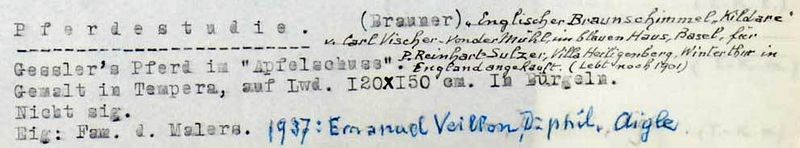 Pferdestudie. (Brauner) "Englischer Braunschimmel, Kildare"
v. Carl Vischer-VonderMühl im blauen Haus, Basel, für
P. Reinhart-Sulzer, Villa Heiligenberg, Winterthur in
Gessler's Pferd im "Apfelschuss". England angekauft. (Lebt noch 1901)
Gemalt in Tempera, auf Lwd. 120X150 cm. In Bürgeln.
Nicht sig.
Eig: Fam. d. Malers. 1937: Emanuel Veillon, Dr phil, Aigle